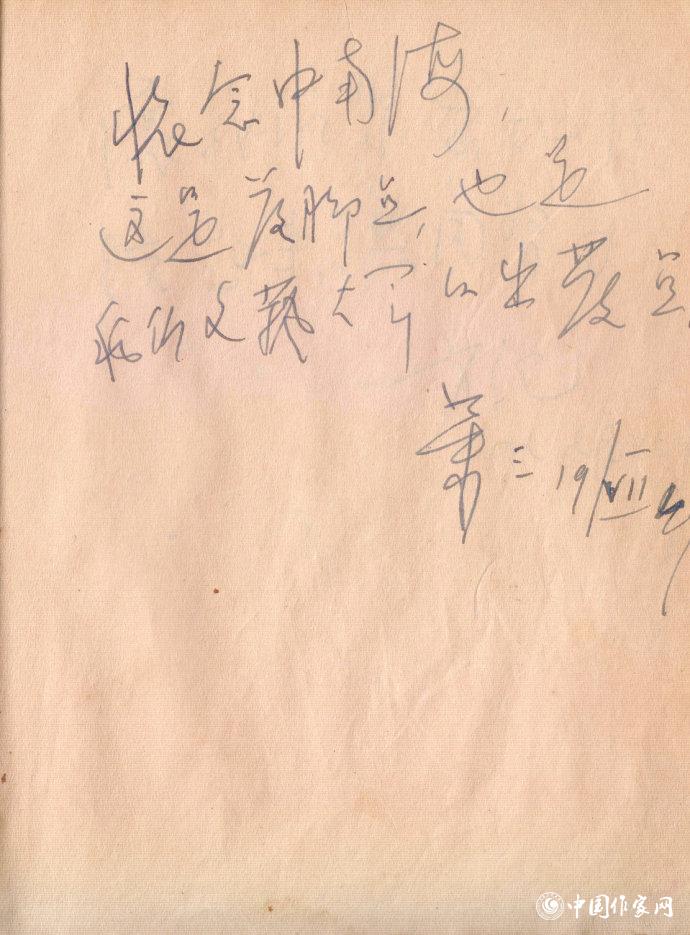 怀念中南海,
这是落脚点,也是
我们文藝大军的出發点
萧三 19/VII
中国作家网